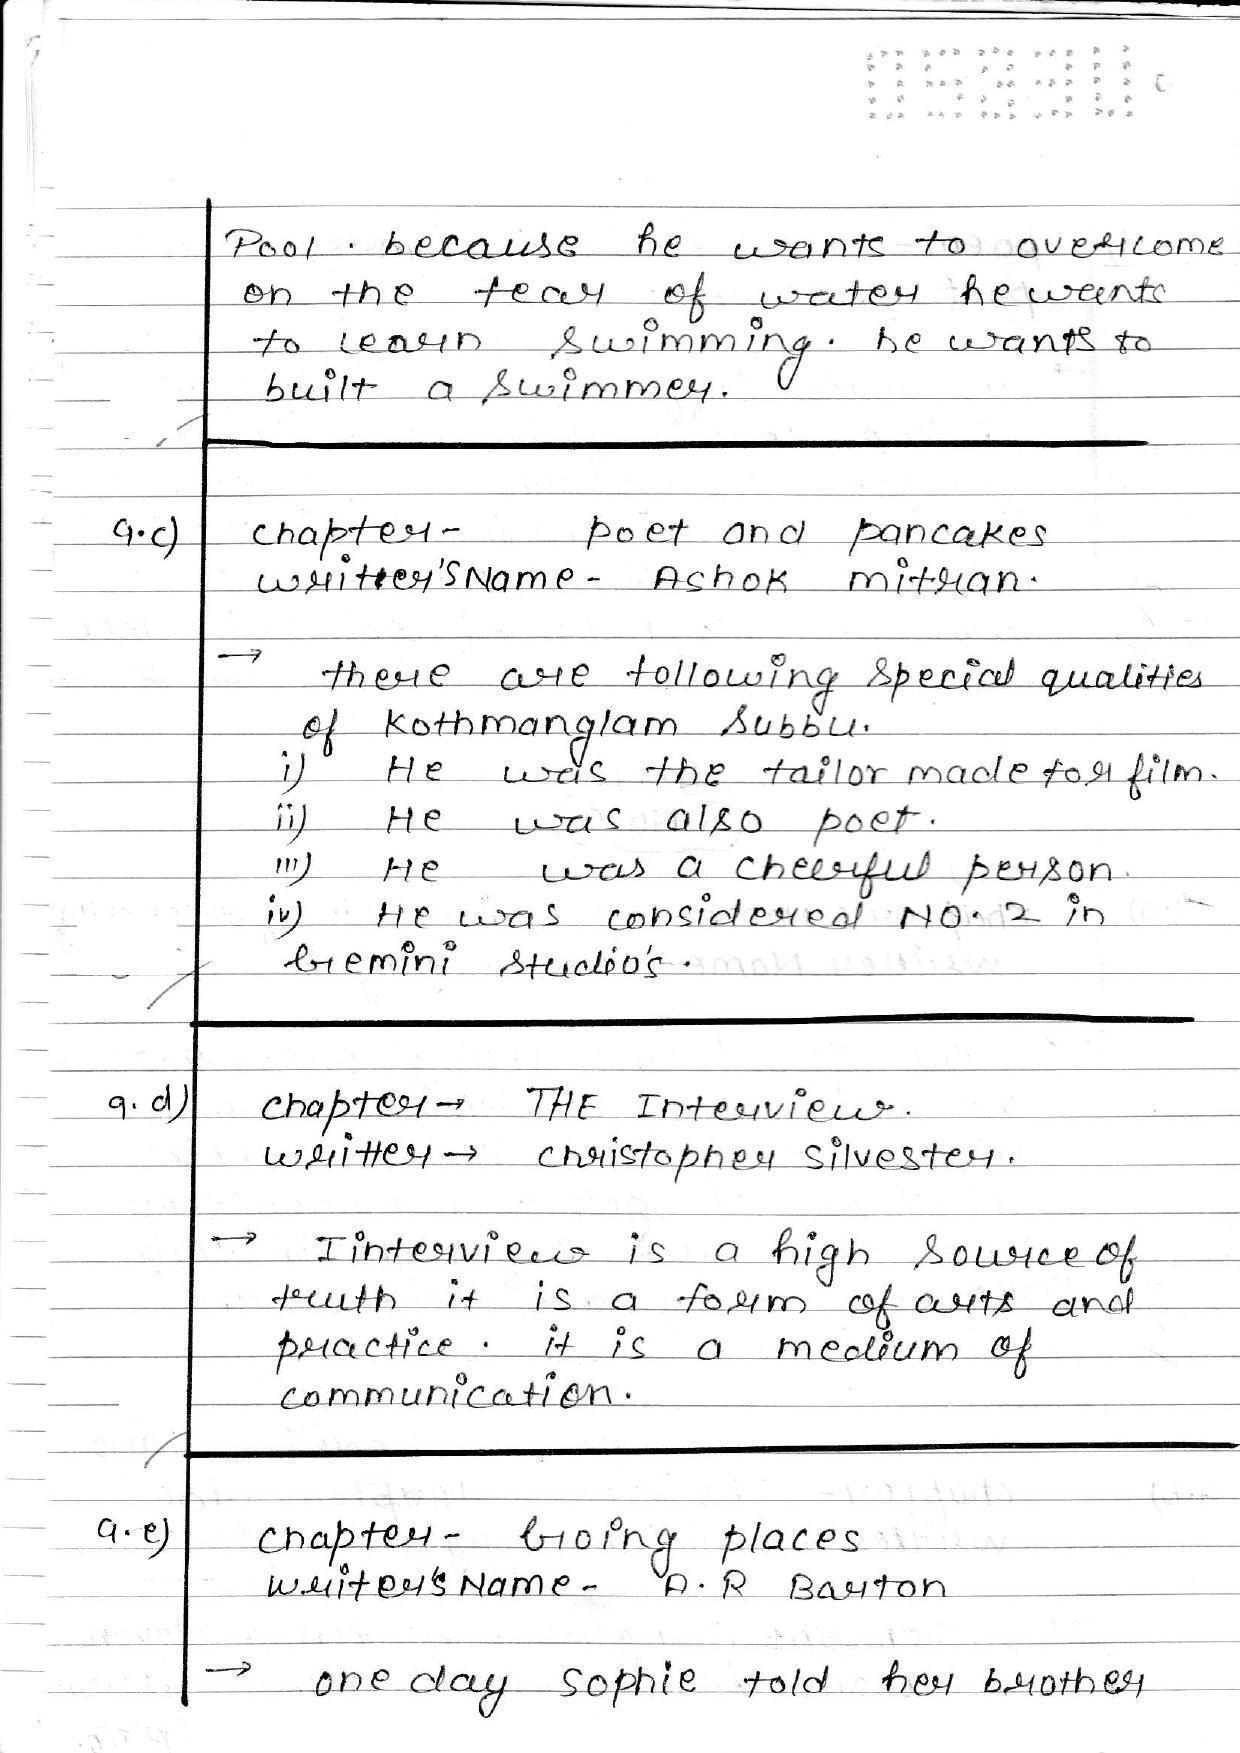 Pool. because he wants to overcome
on the fear of water he wants
to learn swimming. he wants to
built a swimmer.
9.c) chapter- poet and pancakes
writter's Name - Ashok mitran.
→ there are following special qualities
of Kothmanglam Subbu.
i) He was the tailor made for film.
ii) He was also poet.
iii) He was a cheerful person.
iv) He was considered NO. 2 in
Gemini studio's.
9. d) chapter → THE Interview.
writter → christopher silvester.
→ Iinterview is a high source of
truth it is a form of arts and
practice. it is a medium of
communication.
9. e) chapter - Going places
writer's Name - A. R Barton
→ one day sophie told her brother